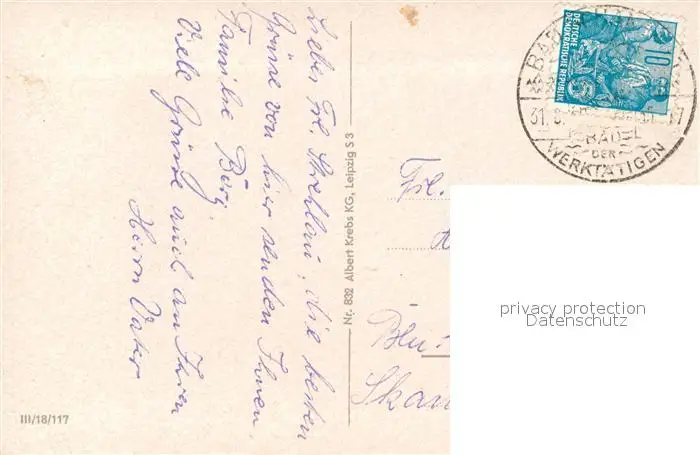 Liebes Frl. Strehlau, die besten
Grüsse von hier senden Ihnen
Familie Berg
Viele Grüsse auch an Ihren
Herrn Vater
Nr. 832 Albert Krebs KG, Leipzig S 3
III/18/117
DEUTSCHE
DEMOKRATISCHE REPUBLIK
10
BAD
31. 8.
BÄDEL
DER
WERKTÄTIGEN
Frl.
privacy protection
Datenschutz